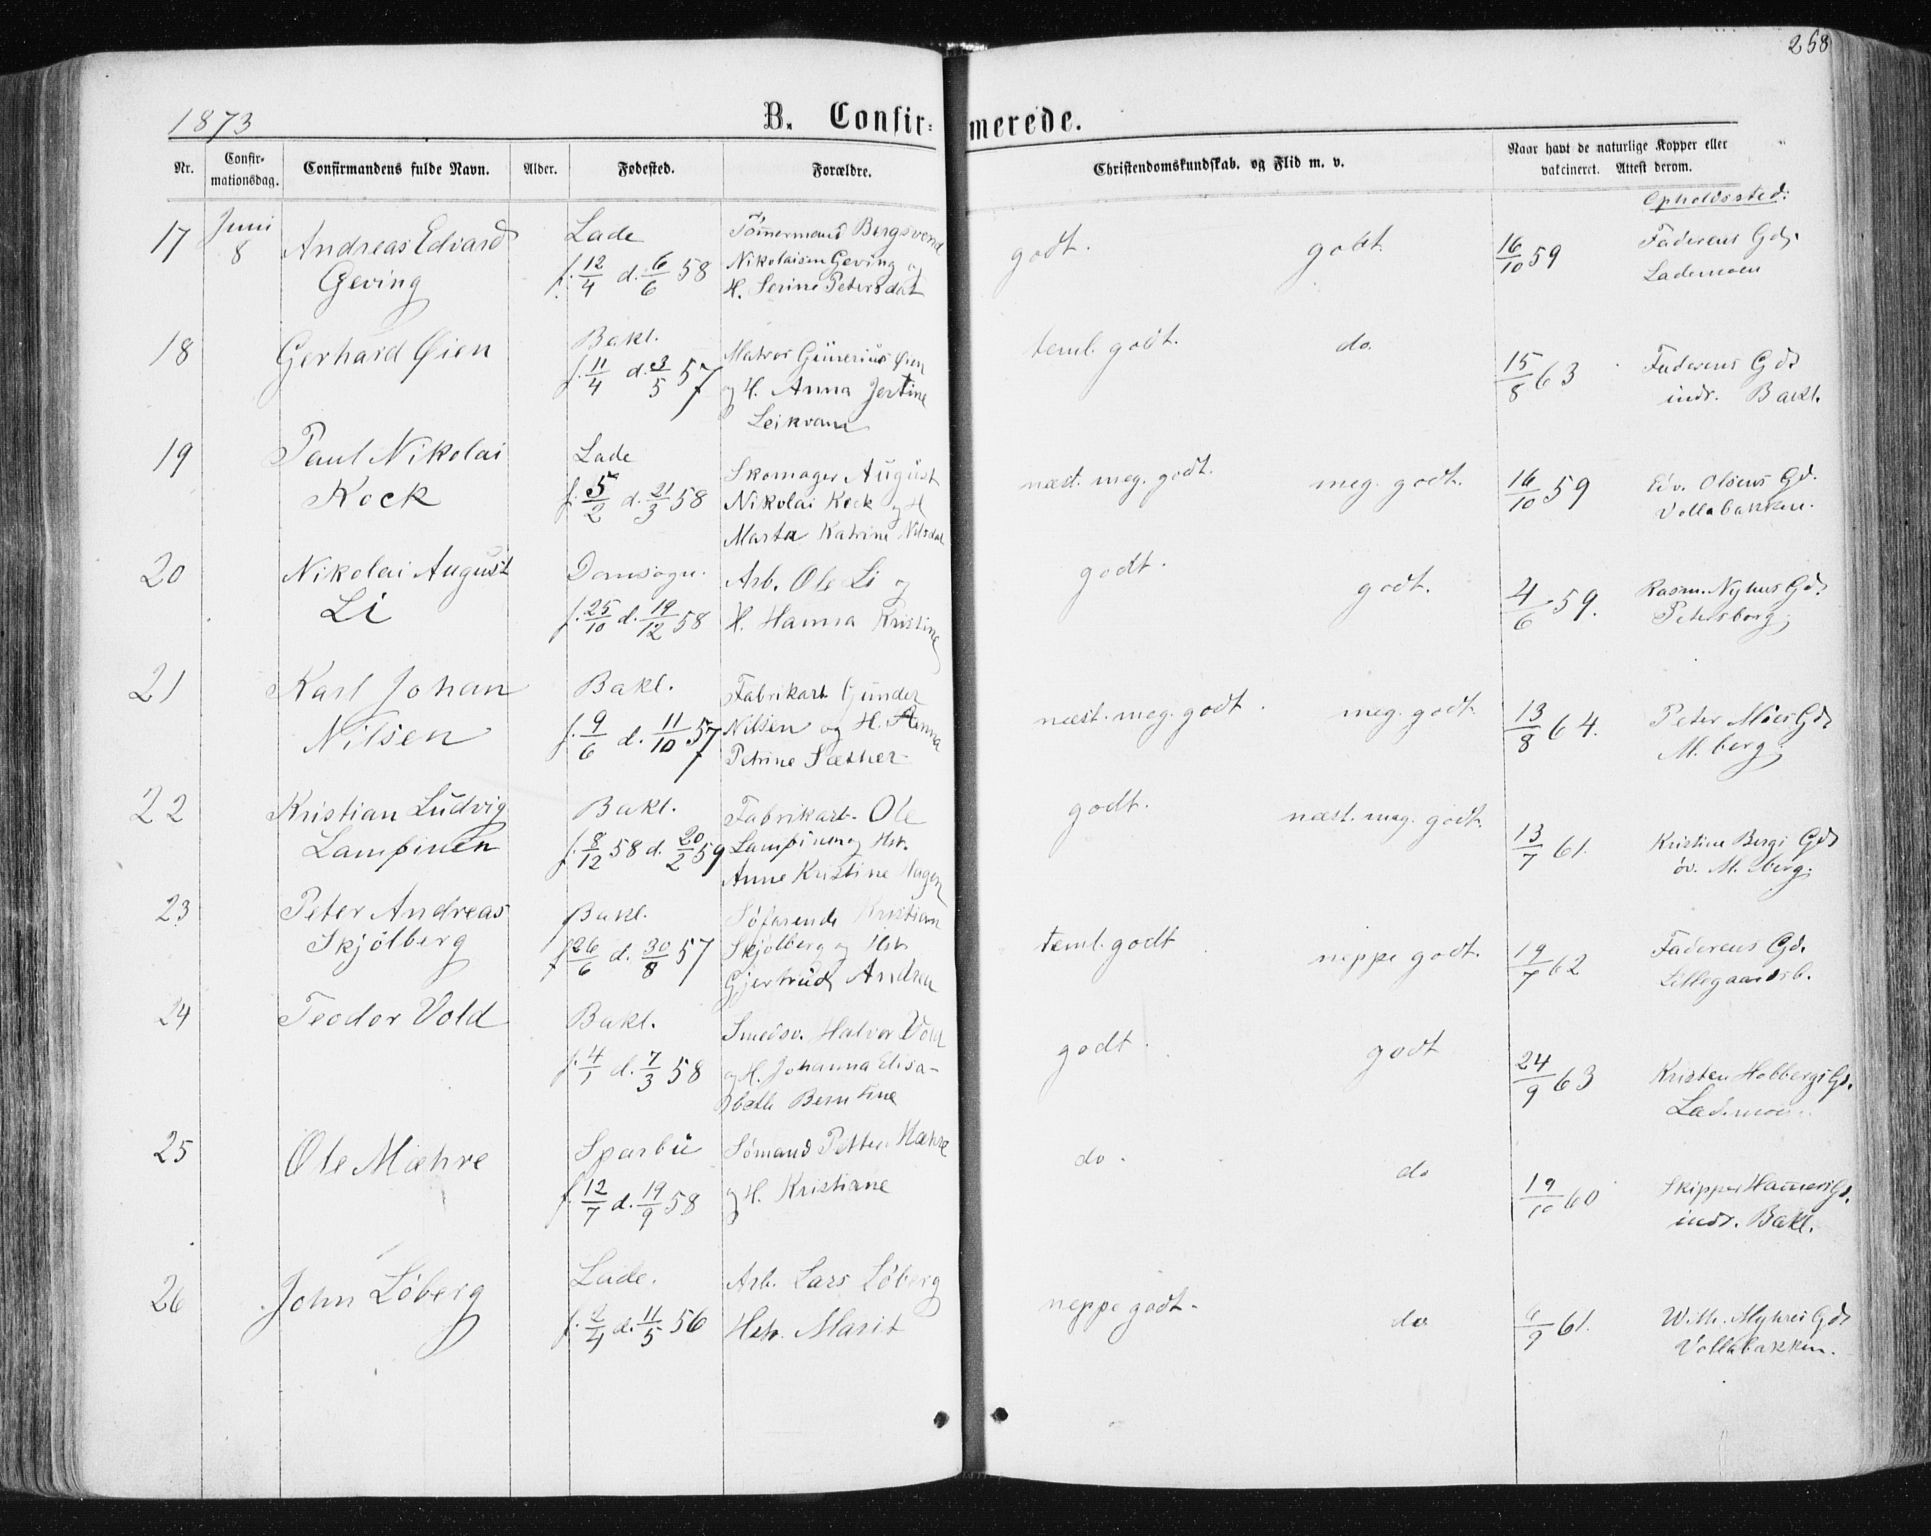 258
1873
B. Confir-
merede.
Nr.
Confir-
mationsdag.
Confirmandens fulde Navn.
Alder.
Fødested.
Forældre.
Christendomskundskab. og Flid m. v.
Naar havt de naturlige Kopper eller
vakcineret. Attest derom.
Opholdssted:
17 Juni 8 Andreas Edvard
Geving
Lade
f. 12/4 d. 6/6 58
Tömermand Bergsvend
Nikolaisen Geving og
H. Serine Petersdat
godt. godt. 16/10 59
Faderens Gd.
Lademoen
18 Gerhard Øien
Bakl.
f. 11/4 d. 3/5 57
Matros Gunerius Øien
og H. Anna Jertine
Leikvam
teml. godt. do. 15/8 63
Faderens Gd
indr. Bakl.
19 Paul Nikolai
Kock
Lade
f. 5/2 d. 21/3 58
Skomager August
Nikolai Kock og H
Marta Katrine Nilsdat
næst. meg. godt. meg. godt. 16/10 59
Edv. Olsens Gd.
Vollabakken.
20 Nikolai August
Li
Domsogn.
f. 25/10 d. 19/12 58
Arb. Ole Li og
H. Hanna Kristine
godt. godt. 4/6 59.
Rasm. Nyhus Gd.
Petersborg
21 Karl Johan
Nilsen
Bakl.
f. 9/6 d. 11/10 57
Fabrikarb. Gunder
Nilsen og H. Anna
Petrine Sæther
næst. meg. godt. meg. godt. 13/8 64.
Peter Moes Gd
M. berg
22 Kristian Ludvig
Lampinen
Bakl.
f. 8/12 58 d. 20/2 59
Fabrikarb. Ole
Lampinen og Hst.
Anne Kristine
godt. næst. meg. godt. 13/7 61.
Kristine Bergs Gd
öv. M. berg.
23 Peter Andreas
Skjölberg
Bakl.
f. 26/6 d. 30/8 57
Söfarende Kristian
Skjölberg og Hst.
Gjertrud Andrea
teml. godt neppe godt. 19/7 62
Faderens Gd.
Lillegaardsb.
24 Teodor Vold
Bakl.
f. 4/1 d. 7/3 58
Smedsv. Halvor Vold
og H. Johanna Elisa-
beth Berntine
godt. godt 24/9 63
Kristen Hobbergs Gd.
Lademoen.
25 Ole Mæhre
Sparbu
f. 12/7 d. 19/9 58
Sömand Petter Mæhre
og H. Kristiane
do. do 19/10 60
Skipper Hamers Gd.
indr. Bakl.
26 John Löberg
Lade.
f. 2/4 d. 11/5 56
Arb. Lars Löberg
Hst. Marit
neppe godt. do 6/9 61.
W. M. Myhres Gd
Vollabakken.